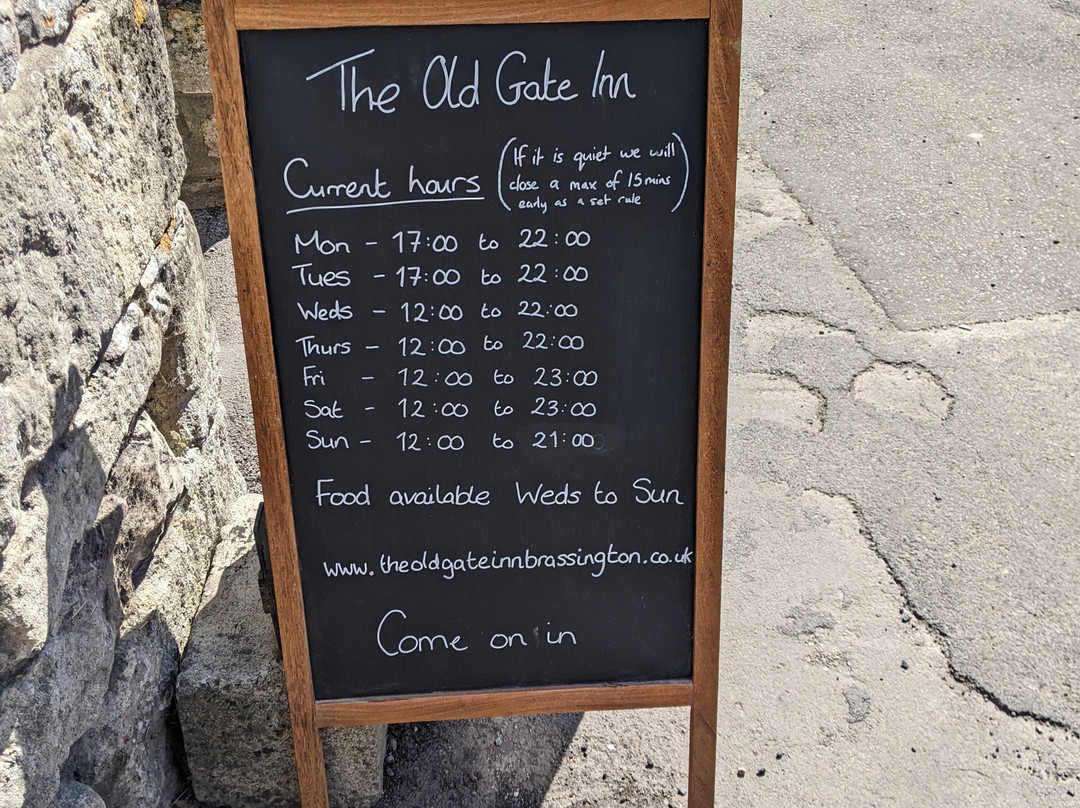 The Old Gate Inn
Current hours
(If it is quiet we will
close a max of 15mins
early as a set rule)
Mon - 17:00 to 22:00
Tues - 17:00 to 22:00
Weds - 12:00 to 22:00
Thurs - 12:00 to 22:00
Fri - 12:00 to 23:00
Sat - 12:00 to 23:00
Sun - 12:00 to 21:00
Food available Weds to Sun
www.theoldgateinnbrassington.co.uk
Come on in